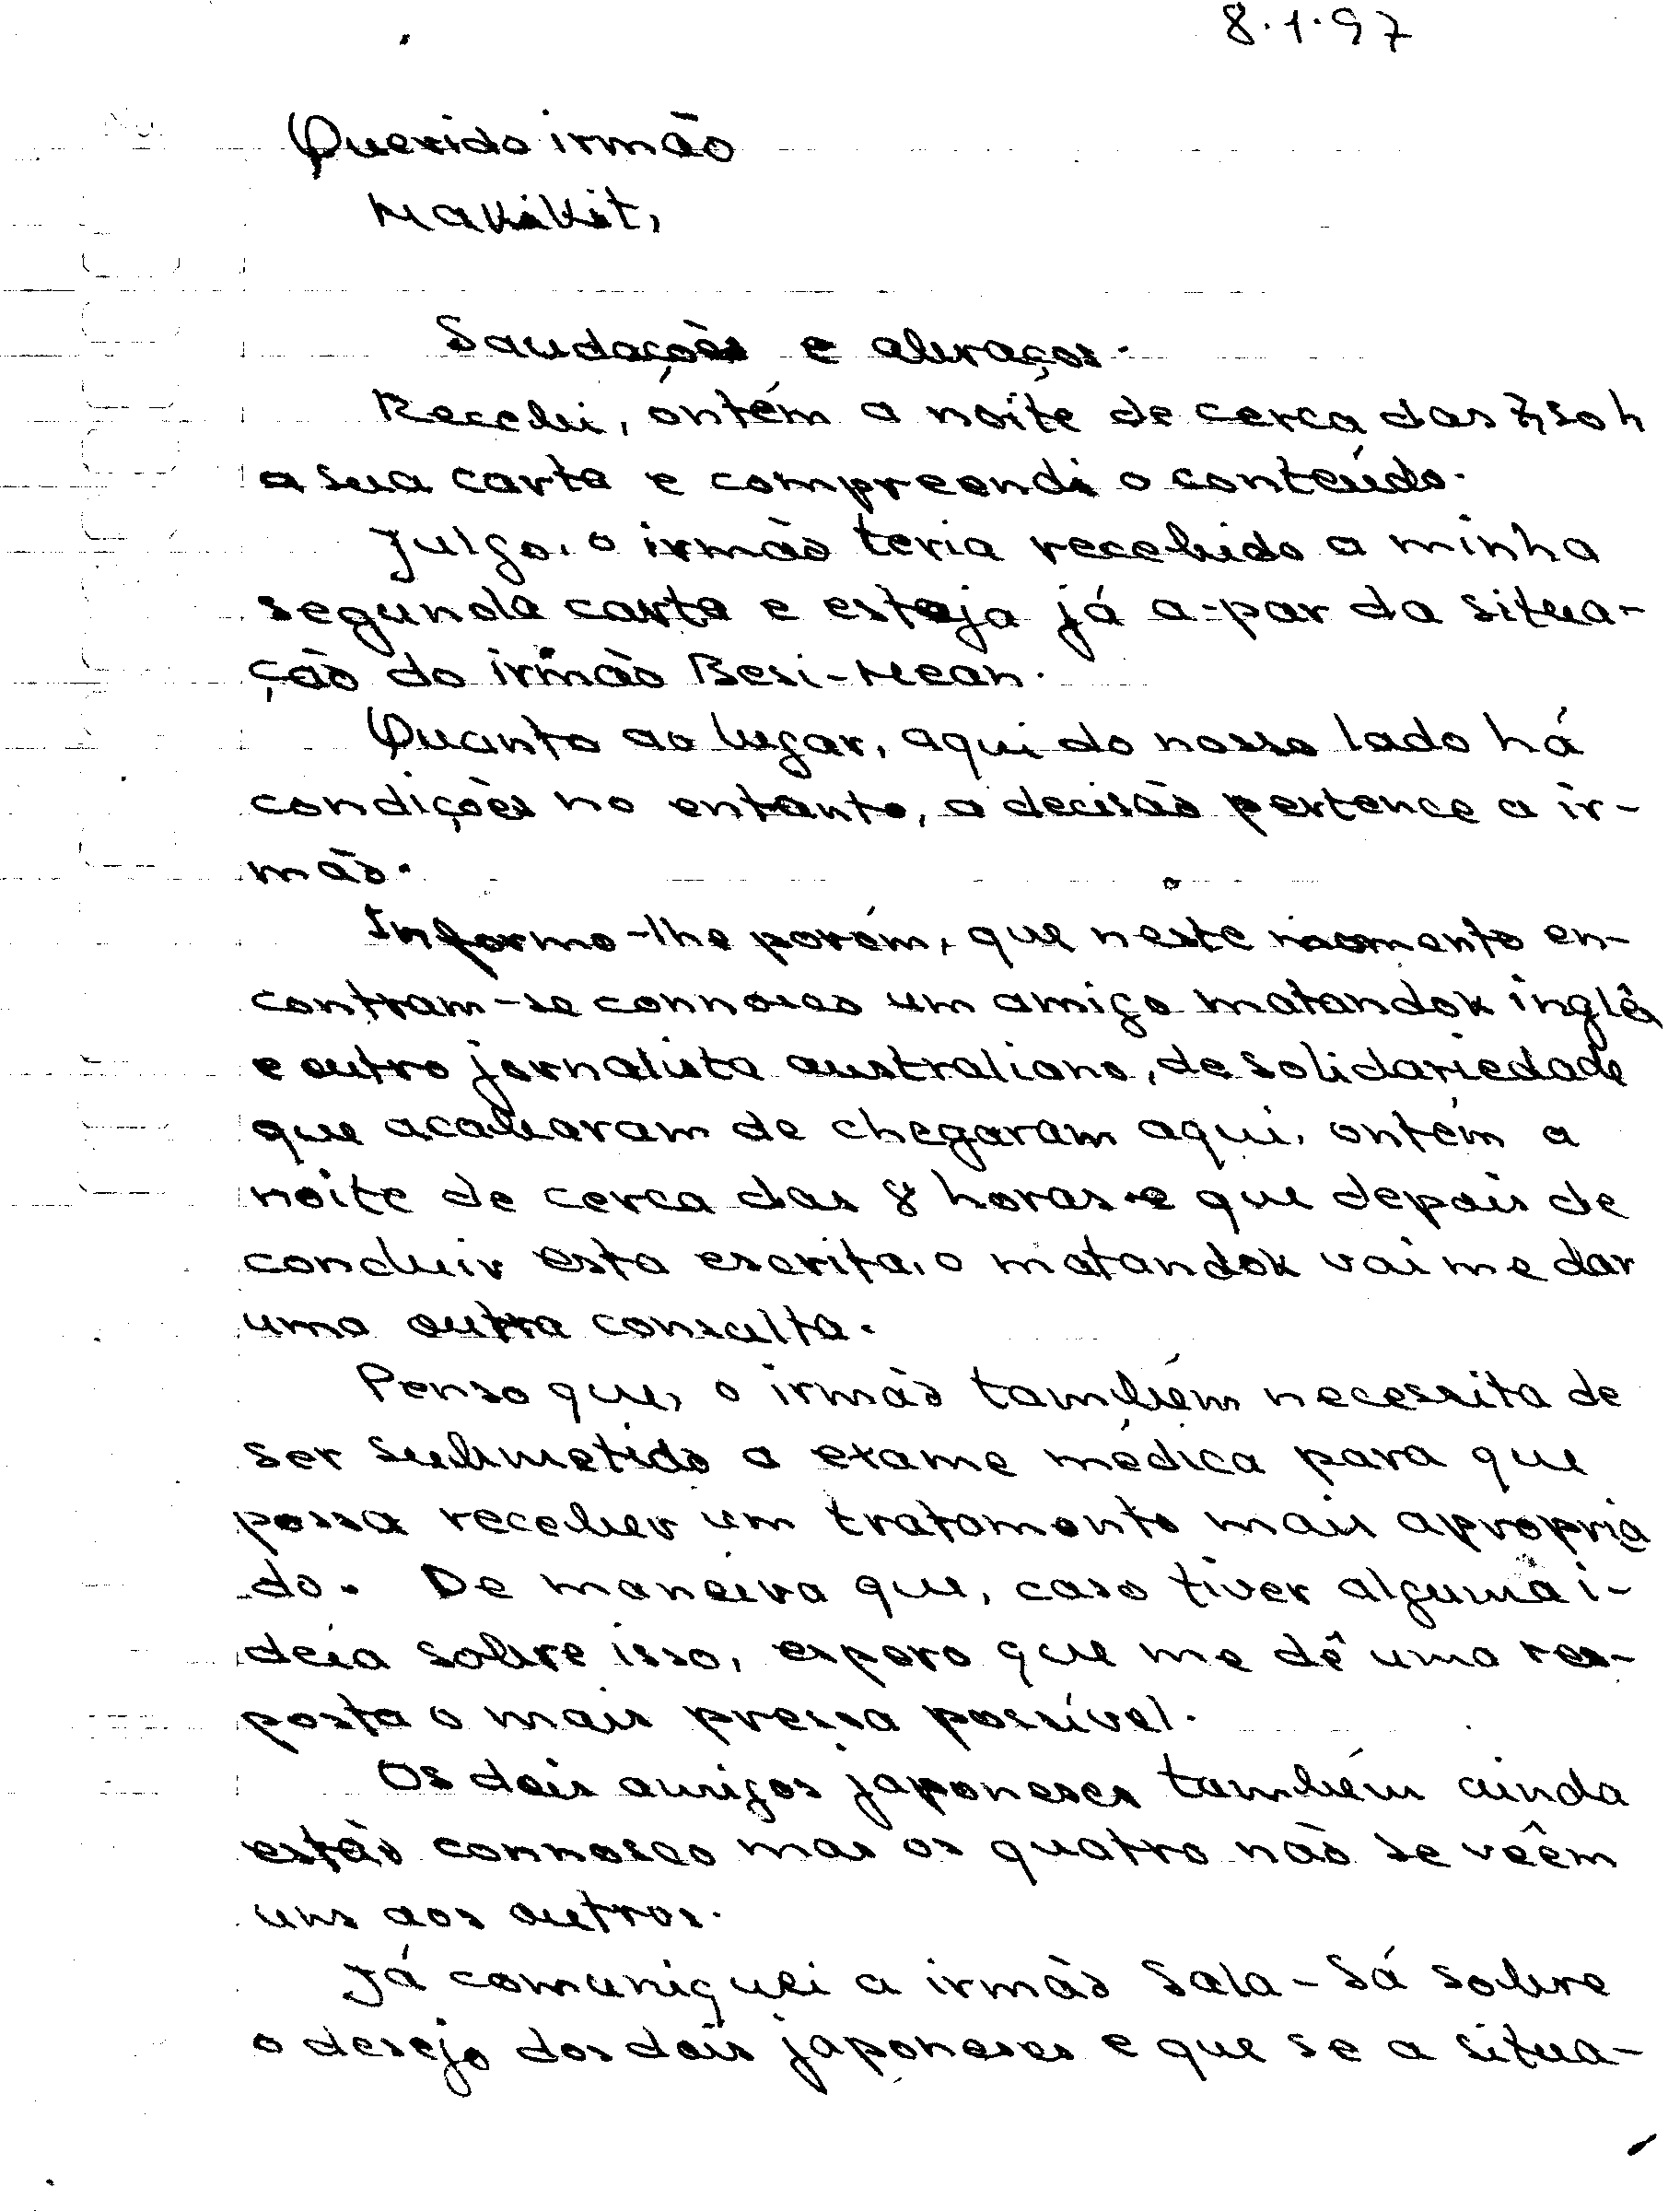 8.1.97
Querido irmão
Makikit,
Saudações e abraços.
Recebi, ontém a noite de cerca das 7,50 h
a sua carta e compreendi o conteúdo.
Julgo, o irmão teria recebido a minha
segunda carta e esteja já a-par da situa-
ção do irmão Besi-Mean.
Quanto ao lugar, aqui do nosso lado há
condições no entanto, a decisão pertence a ir-
mão.
Informo-lhe porém, que neste momento en-
contram-se connosco um amigo matandok inglês
e outro jornalista australiano, de solidariedade
que acabaram de chegaram aqui, ontém a
noite de cerca das 8 horas e que depois de
concluir esta escrita, o matandok vai me dar
uma outra consulta.
Penso que, o irmão também necessita de
ser submetido a exame médica para que
possa receber um tratamento mais apropria
do. De maneira que, caso tiver alguma i-
deia sobre isso, espero que me dê uma res-
posta o mais pressa possível.
Os dois amigos japoneses também ainda
estão connosco mas os quatro não se vêem
uns aos outros.
Já comuniquei a irmão Sala-Sá sobre
o desejo dos dois japoneses e que se a situa-